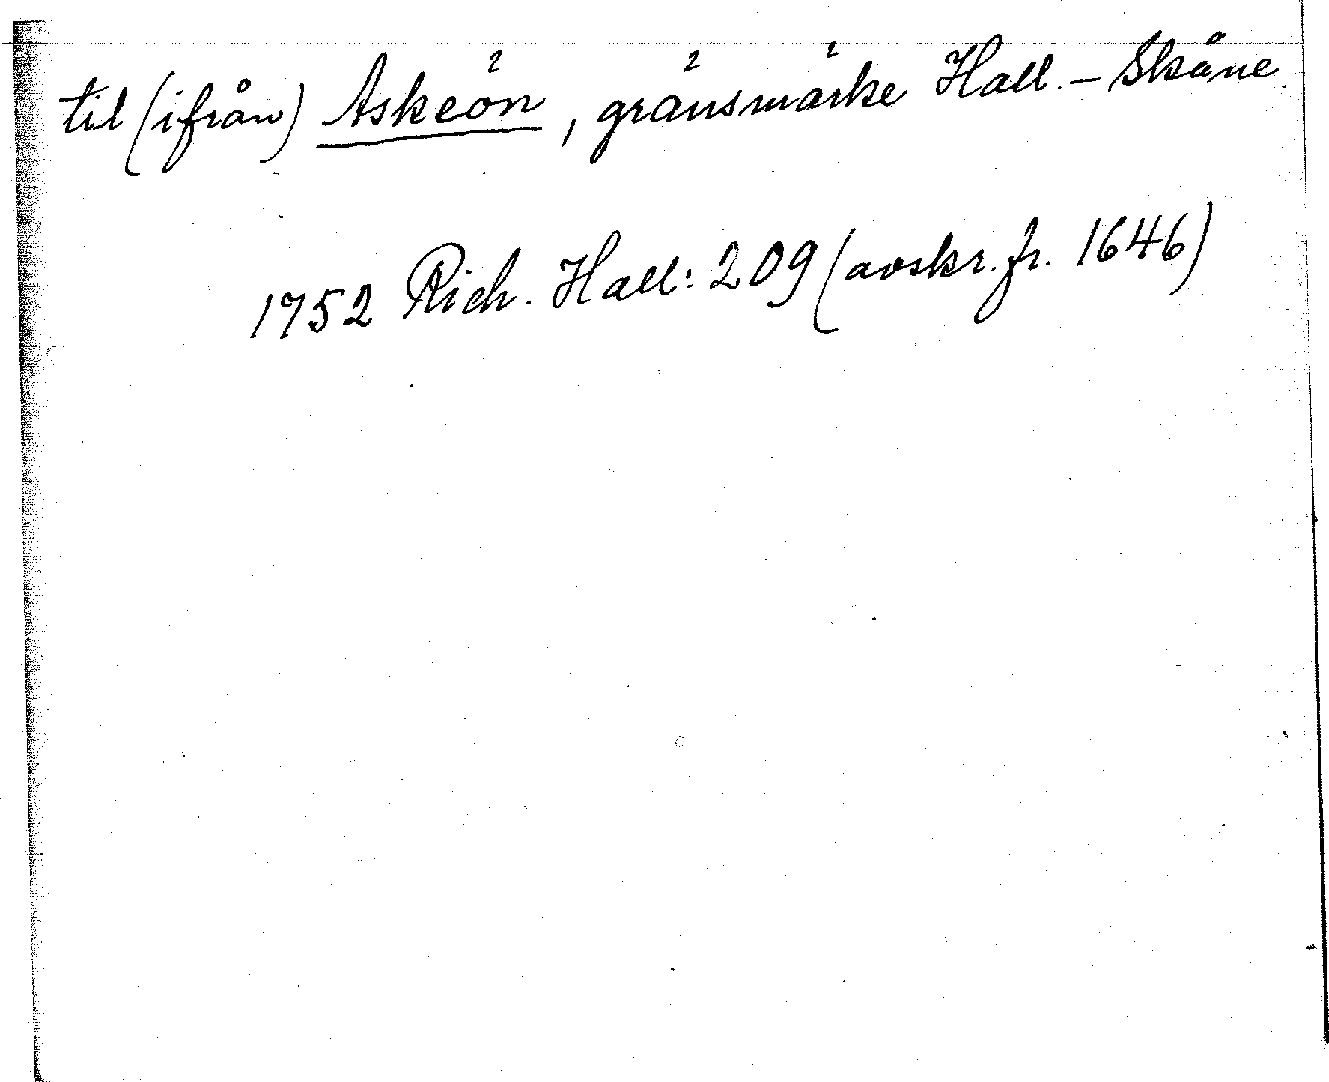 til (ifrån) Askeön, gränsmärke Hall. – Skåne.
1752 Rich. Hall: 209 (avskr. fr. 1646)